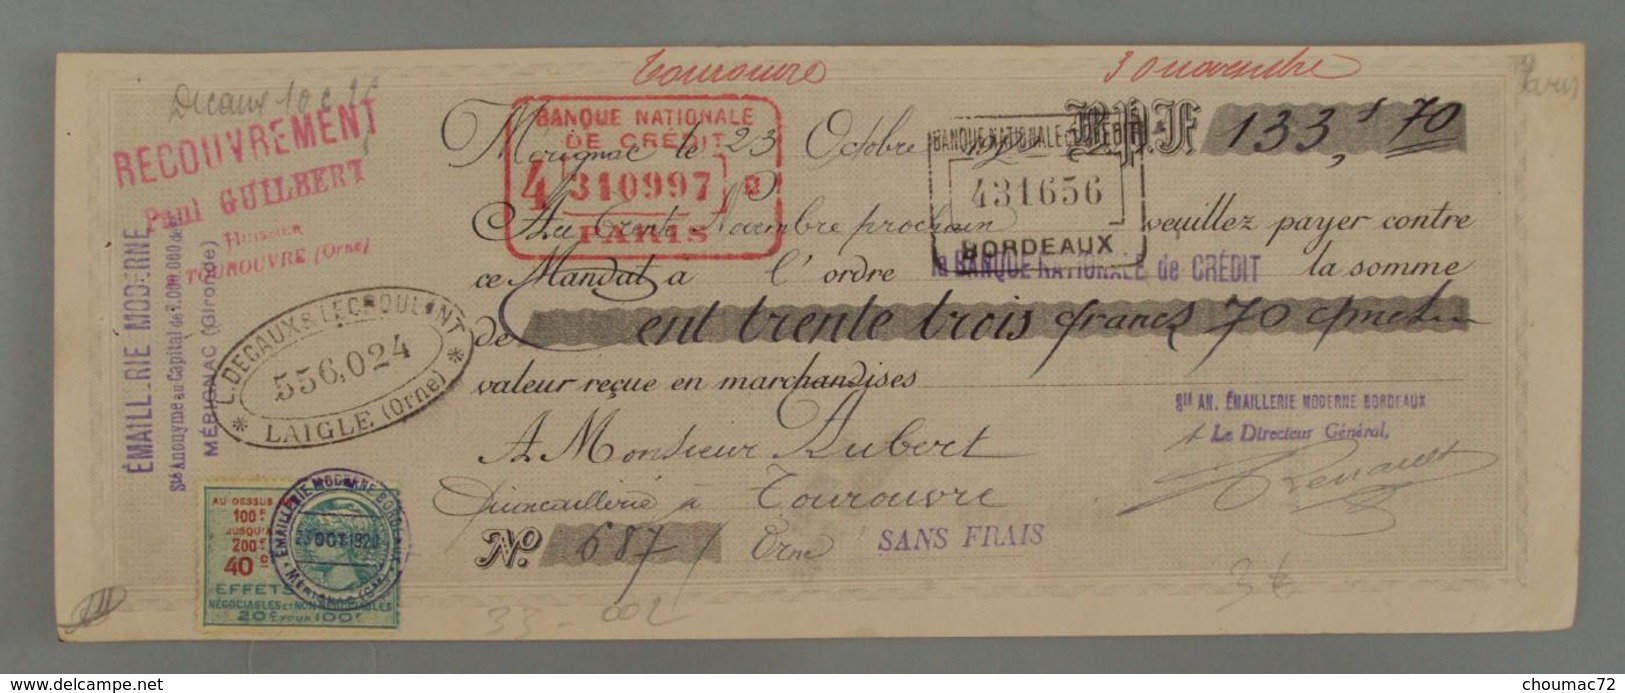 Tourouvre
30 novembre
Paris
Decaux 10 c
RECOUVREMENT
Paul GUILBERT
Huissier
TOUROUVRE (Orne)
ÉMAILLERIE MODERNE
Sté Anonyme au Capital de
MÉRIGNAC (Gironde)
BANQUE NATIONALE
DE CRÉDIT
4 310997
PARIS
Merignac le 23 Octobre
BANQUE NATIONALE de CRÉDIT
431656
BORDEAUX
B.P.F 133,f 70
Au Trente Novembre prochain veuillez payer contre
ce Mandat à l'ordre la BANQUE NATIONALE de CRÉDIT la somme
de Cent trente trois francs 70 cmes
valeur reçue en marchandises
L. DECAUX & LECROULANT
556,024
* LAIGLE (Orne) *
A Monsieur Aubert
Quincaillerie à Tourouvre
Orne
Sté AN. ÉMAILLERIE MODERNE BORDEAUX
Le Directeur Général,
No. 687
SANS FRAIS
AU DESSUS DE
100F
JUSQU'A
200F
40c
EFFETS
NÉGOCIABLES ET NON NÉGOCIABLES
20c POUR 100F
ÉMAILLERIE MODERNE BORDEAUX
23 OCT 1920
MÉRIGNAC (Gde)
33-002
3€
choumac72
www.delcampe.net